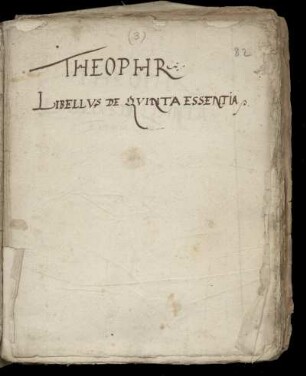 (3)
82
THEOPHR
LIBELLVS DE QVINTA ESSENTIA.